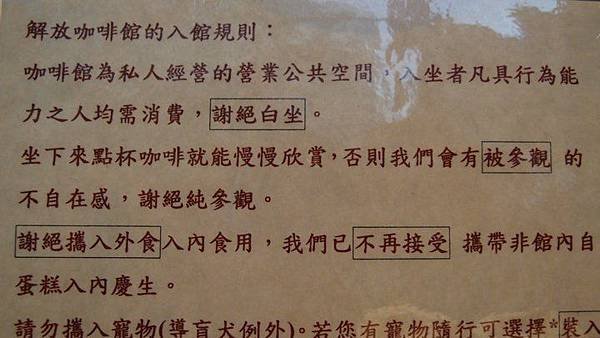 解放咖啡館的入館規則：
咖啡館為私人經營的營業公共空間，入坐者凡具行為能
力之人均需消費，謝絕白坐。
坐下來點杯咖啡就能慢慢欣賞，否則我們會有被參觀 的
不自在感，謝絕純參觀。
謝絕攜入外食入內食用，我們已不再接受 攜帶非館內自
蛋糕入內慶生。
請勿攜入寵物(導盲犬例外)。若您有寵物隨行可選擇*裝入